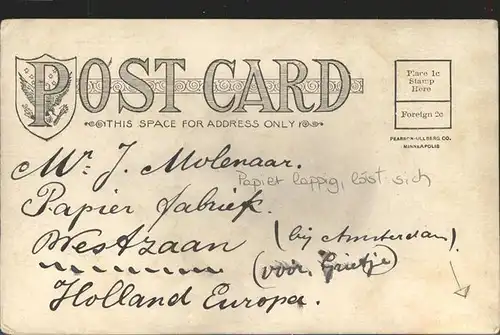 POST CARD
THIS SPACE FOR ADDRESS ONLY
Place 1c
Stamp
Here
Foreign 2c
PEARSON-ULLBERG CO.
MINNEAPOLIS
Mr. J. Molenaar.
Papier lappig, löst sich
Papier fabriek.
Westzaan (bij Amsterdam)
(voor Grietje)
Holland Europa.